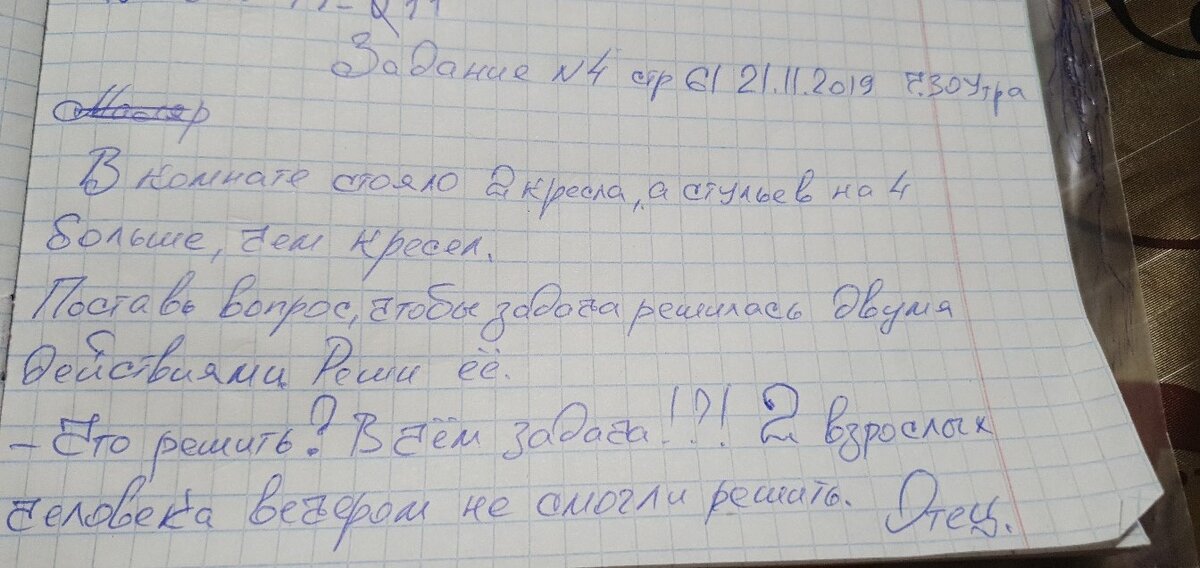 Задание №4 стр 61 21.11.2019 7.30 Утра
В комнате стояло 2 кресла, а стульев на 4
больше, чем кресел.
Поставь вопрос, чтобы задача решилась двумя
действиями. Реши её.
- Что решить? В чём задача!?! 2 взрослых
человека вечером не смогли решить. Отец.